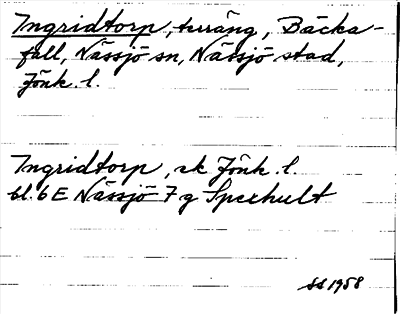 Ingridtorp, turäng, Bäcka-
fall, Nässjö sn, Nässjö stad,
Jönk. l.
Ingridtorp, ek Jönk. l.
bl. 6 E Nässjö 7 g Spexhult
SS 1958